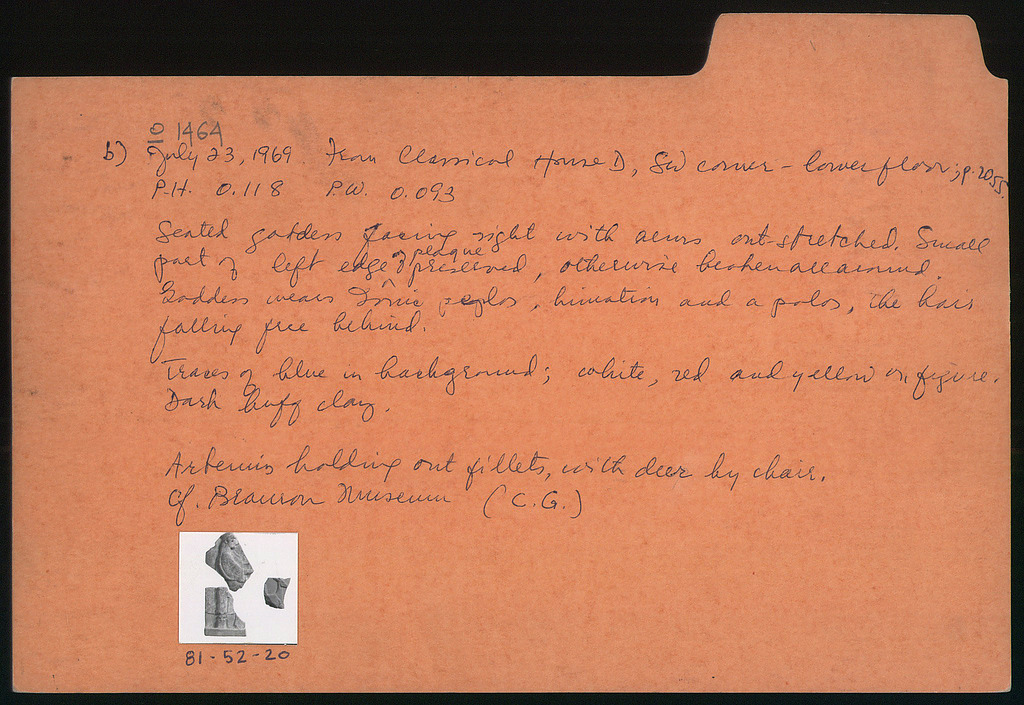 10 1464
b) July 23, 1969. From Classical House D, SW corner - lower floor; p. 2055.
P.H. 0.118 P.W. 0.093
Seated goddess facing right with arms out-stretched. Small
part of left edge of plaque preserved, otherwise broken all around.
Goddess wears Ionic peplos, himation and a polos, the hair
falling free behind.
Traces of blue in background; white, red and yellow on figure.
Dark buff clay.
Artemis holding out fillets, with deer by chair.
Cf. Brauron Museum (C.G.)
81-52-20